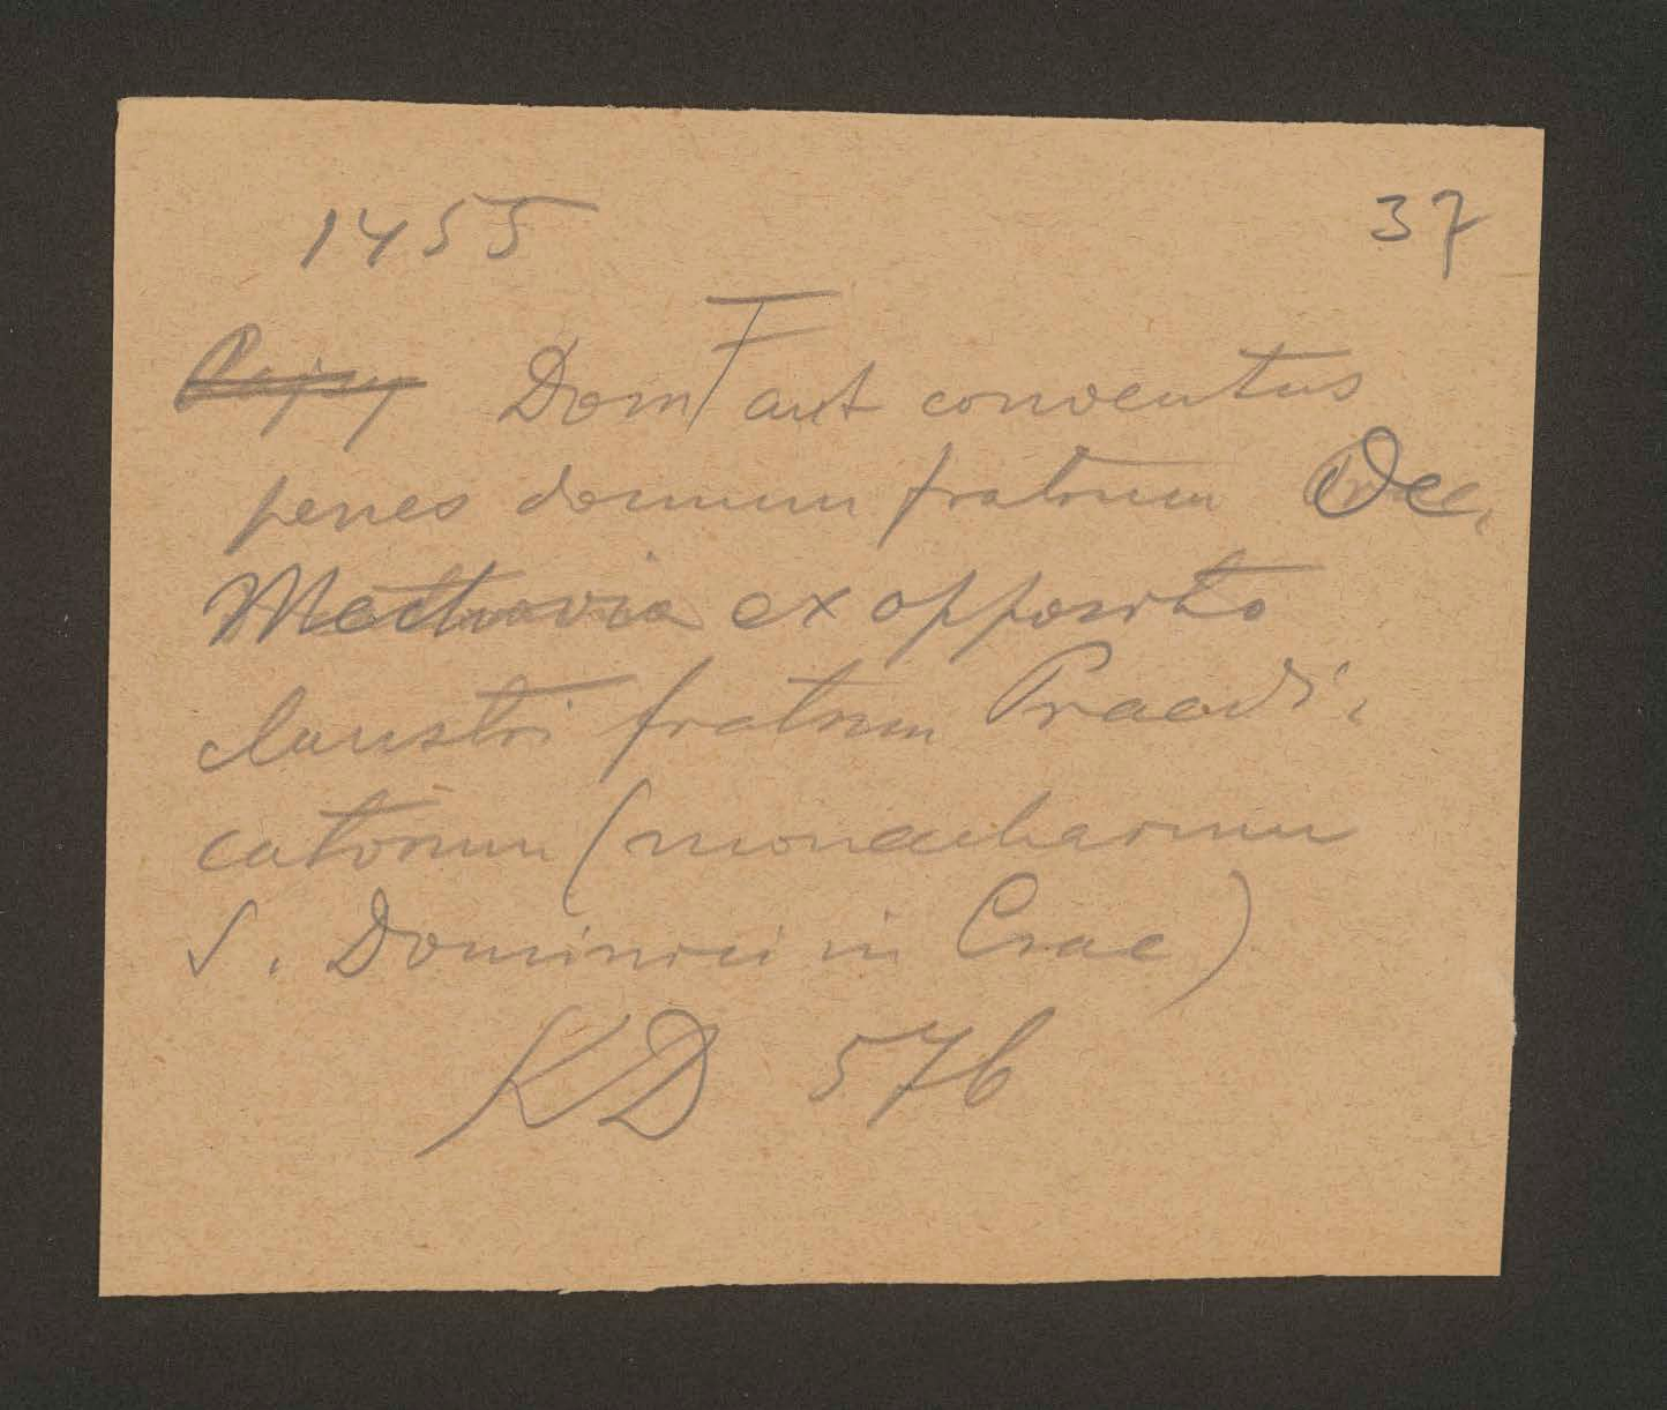 1455 37
Dom F aut conventus
penes domum fratrum De
Mechovia ex opposito
claustri fratrum Praedi,
catorum (monacharum
S. Dominici in Crac)
KD 576